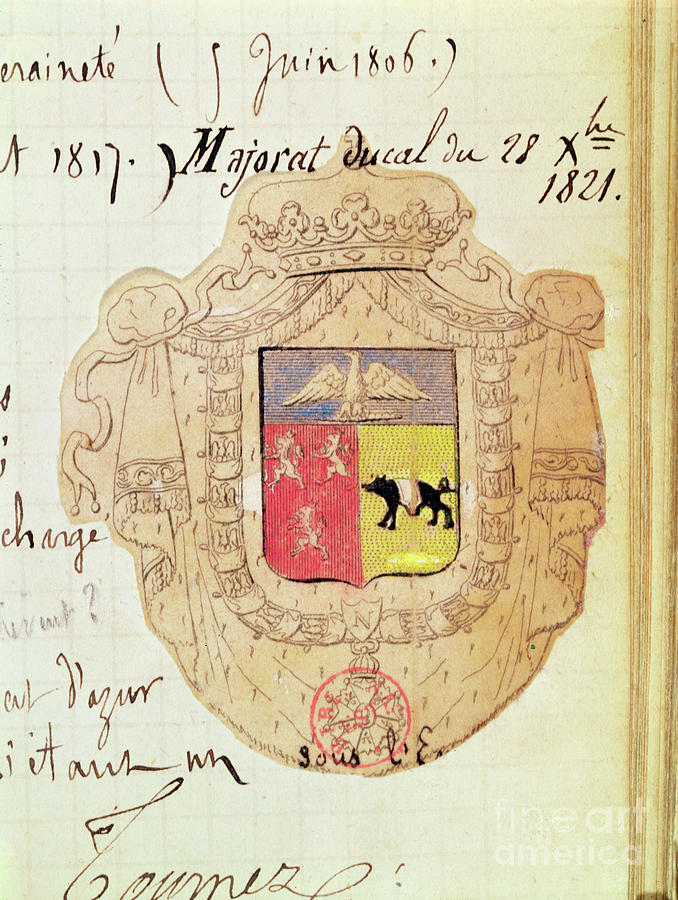 eraineté ( 5 Juin 1806.)
t 1817. ) Majorat ducal du 28 Xbre
1821.
charge
N
at d'azur
sous l'E
étant un
Tournez :
fineart
america